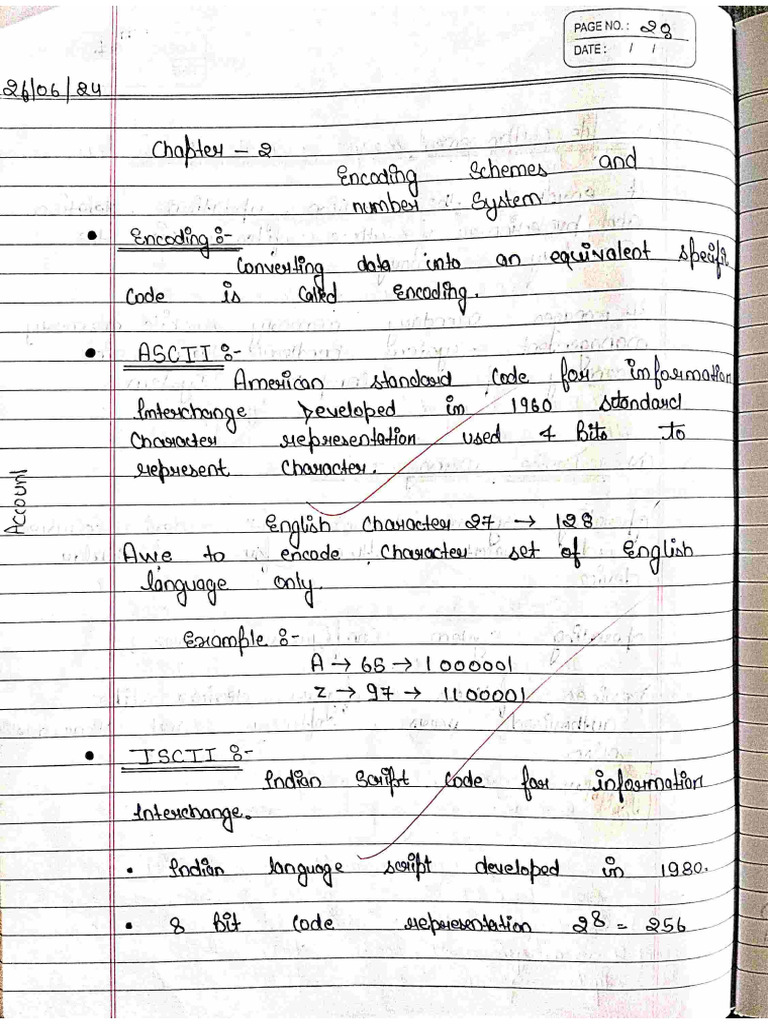 PAGE NO.: 28
DATE: / /
26/06/24
Chapter - 2
Encoding Schemes and
number System
• Encoding :-
Converting data into an equivalent specific
Code is Called Encoding.
• ASCII :-
American standard Code for information
Interchange Developed in 1960 standard
Character representation used 7 Bits to
represent Character.
Account
English Character 27 → 128
Awe to encode Character set of English
language only.
Example :-
A → 65 → 1000001
z → 97 → 1100001
• ISCII :-
Indian Script Code for information
Interchange.
• Indian language script developed in 1980.
• 8 Bit Code representation 2⁸ = 256